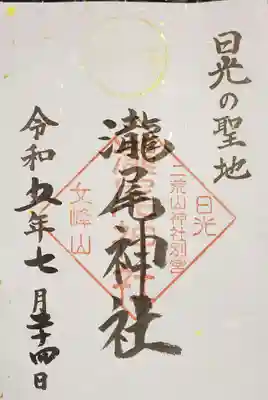 日光の聖地
瀧尾神社
令和五年七月二十四日
日光
二荒山神社別宮
女峰山